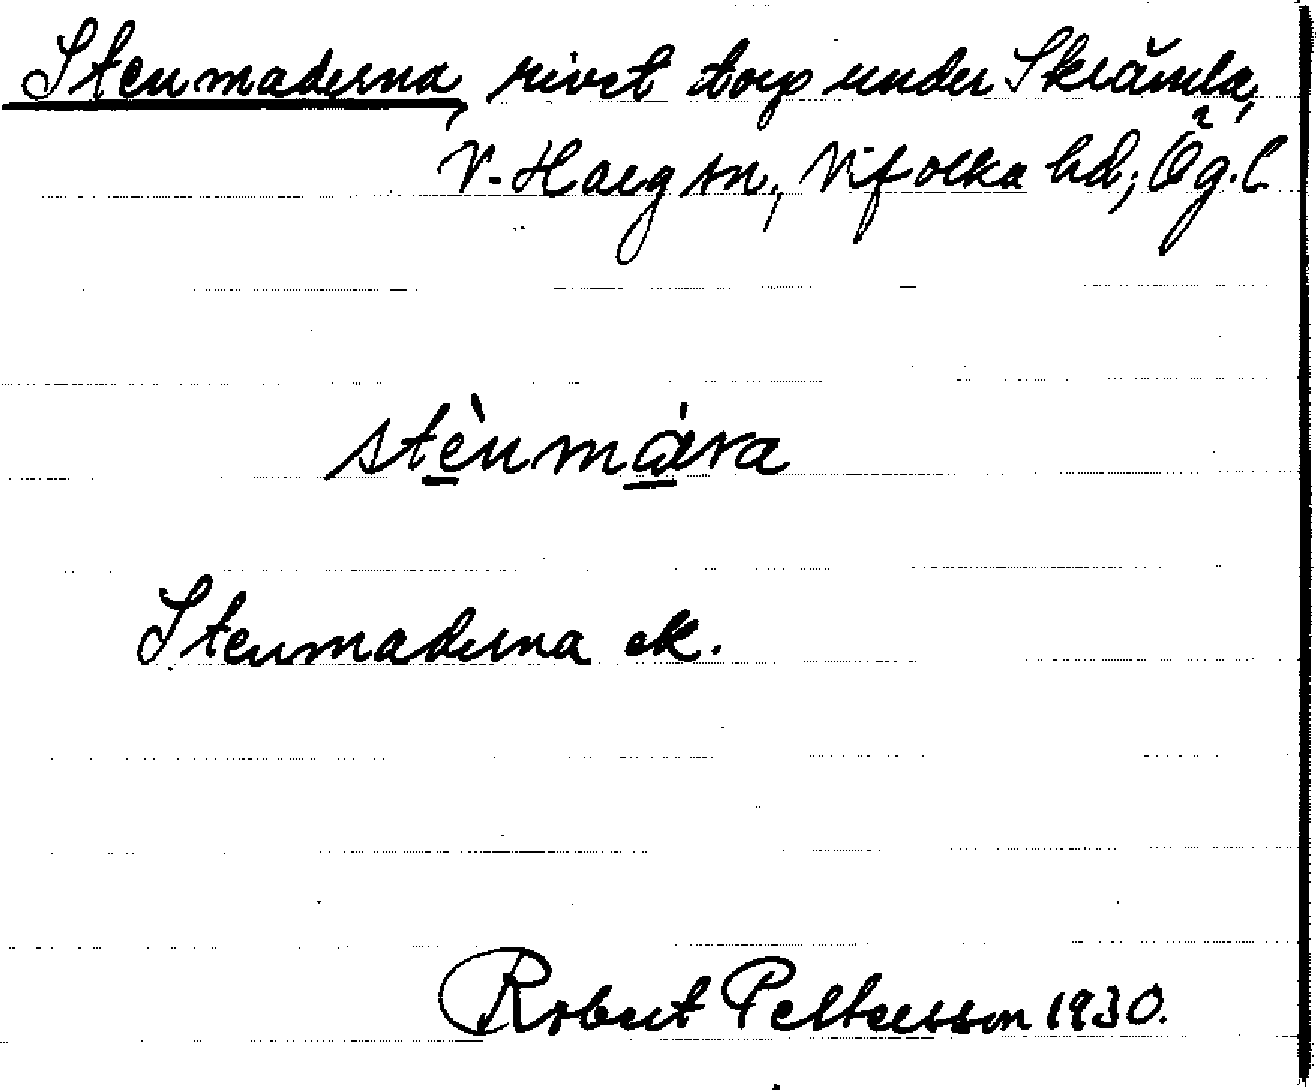 Stenmaderna, rivet torp under Skrämla,
V. Harg sn, Vifolka hd, Ög. l.
stènmàra
Stenmaderna ek.
Robert Pettersson 1930.